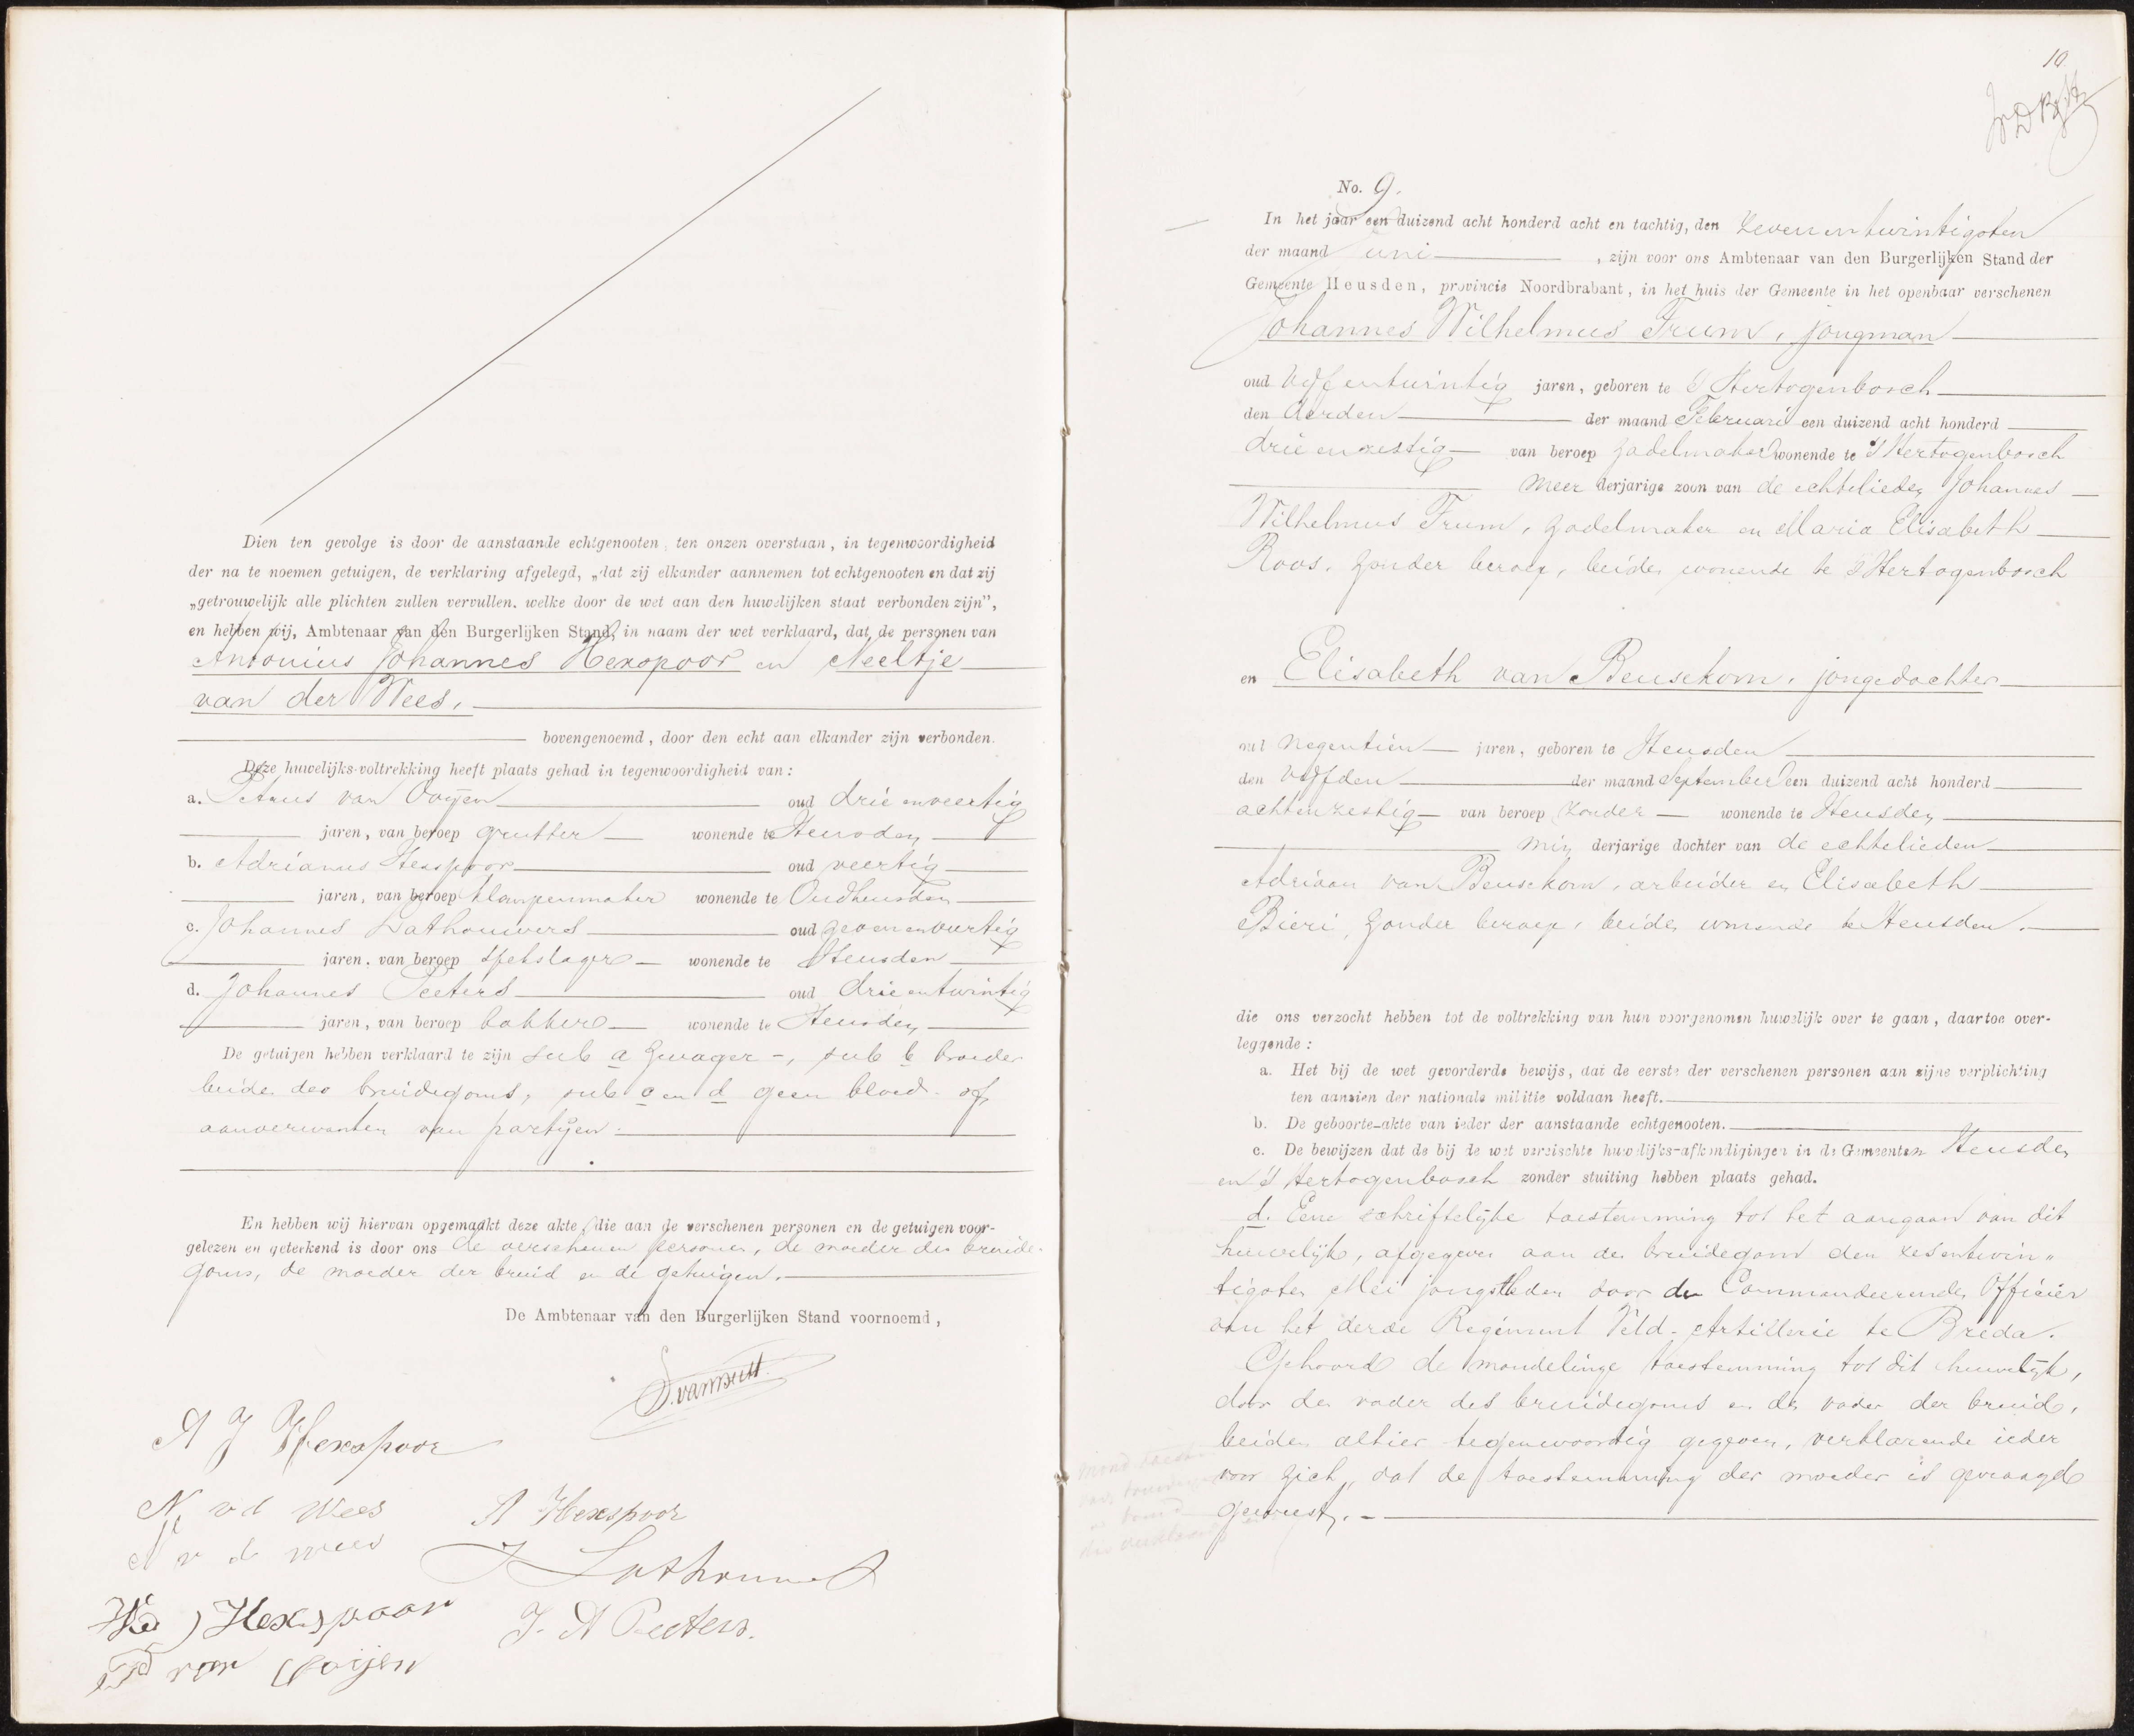 Dien ten gevolge is door de aanstaande echtgenooten, ten onzen overstaan, in tegenwoordigheid
der na te noemen getuigen, de verklaring afgelegd, „dat zij elkander aannemen tot echtgenooten en dat zij
„getrouwelijk alle plichten zullen vervullen, welke door de wet aan den huwelijken staat verbonden zijn”,
en hebben wij, Ambtenaar van den Burgerlijken Stand, in naam der wet verklaard, dat de personen van
Antonius Johannes Hexspoor en Neeltje
van der Wees,
bovengenoemd, door den echt aan elkander zijn verbonden.
Deze huwelijks-voltrekking heeft plaats gehad in tegenwoordigheid van:
a. Petrus van Ooijen oud drie en veertig
jaren, van beroep grutter wonende te Heusden
b. Adrianus Hexspoor oud veertig
jaren, van beroep klompenmaker wonende te Oudheusden
c. Johannes Lathouwers oud zeven en veertig
jaren, van beroep spekslager wonende te Heusden
d. Johannes Peeters oud drie en twintig
jaren, van beroep bakker wonende te Heusden
De getuigen hebben verklaard te zijn sub a zwager -, sub b broeder
beide des bruidegoms, sub c en d geen bloed- of
aanverwanten van partijen.
En hebben wij hiervan opgemaakt deze akte, die aan de verschenen personen en de getuigen voor-
gelezen en geteekend is door ons de verschenen personen, de moeder des bruide-
goms, de moeder der bruid en de getuigen.
De Ambtenaar van den Burgerlijken Stand voornoemd,
A J Hexspoor
N v d Wees A Hexspoor
N v d Wees J Lathouwers
Wed Hexspoor J. A Peeters.
P van Ooijen
10
No. 9.
In het jaar een duizend acht honderd acht en tachtig, den zeven en twintigsten
der maand Juni, zijn voor ons Ambtenaar van den Burgerlijken Stand der
Gemeente Heusden, provincie Noordbrabant, in het huis der Gemeente in het openbaar verschenen
Johannes Wilhelmus Frum, jongman
oud vijf en twintig jaren, geboren te 's Hertogenbosch
den derden der maand Februari een duizend acht honderd
drie en zestig van beroep zadelmaker wonende te 's Hertogenbosch
meer derjarige zoon van de echtelieden Johannes
Wilhelmus Frum, zadelmaker en Maria Elisabeth
Roos, zonder beroep, beiden wonende te 's Hertogenbosch
en Elisabeth van Beusekom, jongedochter
oud negentien jaren, geboren te Heusden
den vijfden der maand September een duizend acht honderd
acht en zestig van beroep zonder wonende te Heusden
min derjarige dochter van de echtelieden
Adriaan van Beusekom, arbeider en Elisabeth
Bieri, zonder beroep, beiden wonende te Heusden.
die ons verzocht hebben tot de voltrekking van hun voorgenomen huwelijk over te gaan, daartoe over-
leggende:
a. Het bij de wet gevorderde bewijs, dat de eerste der verschenen personen aan zijne verplichting
ten aanzien der nationale militie voldaan heeft.
b. De geboorte-akte van ieder der aanstaande echtgenooten.
c. De bewijzen dat de bij de wet vereischte huwelijks-afkondigingen in de Gemeenten Heusden
en 's Hertogenbosch zonder stuiting hebben plaats gehad.
d. Eene schriftelijke toestemming tot het aangaan van dit
huwelijk, afgegeven aan den bruidegom den zesentwin„
tigsten Mei jongstleden door den Commandeerenden Officier
van het derde Regiment Veld-Artillerie te Breda.
Gehoord de mondelinge toestemming tot dit huwelijk,
door den vader des bruidegoms en den vader der bruid,
beiden alhier tegenwoordig gegeven, verklarende ieder
voor zich, dat de toestemming der moeder is gevraagd
geweest.